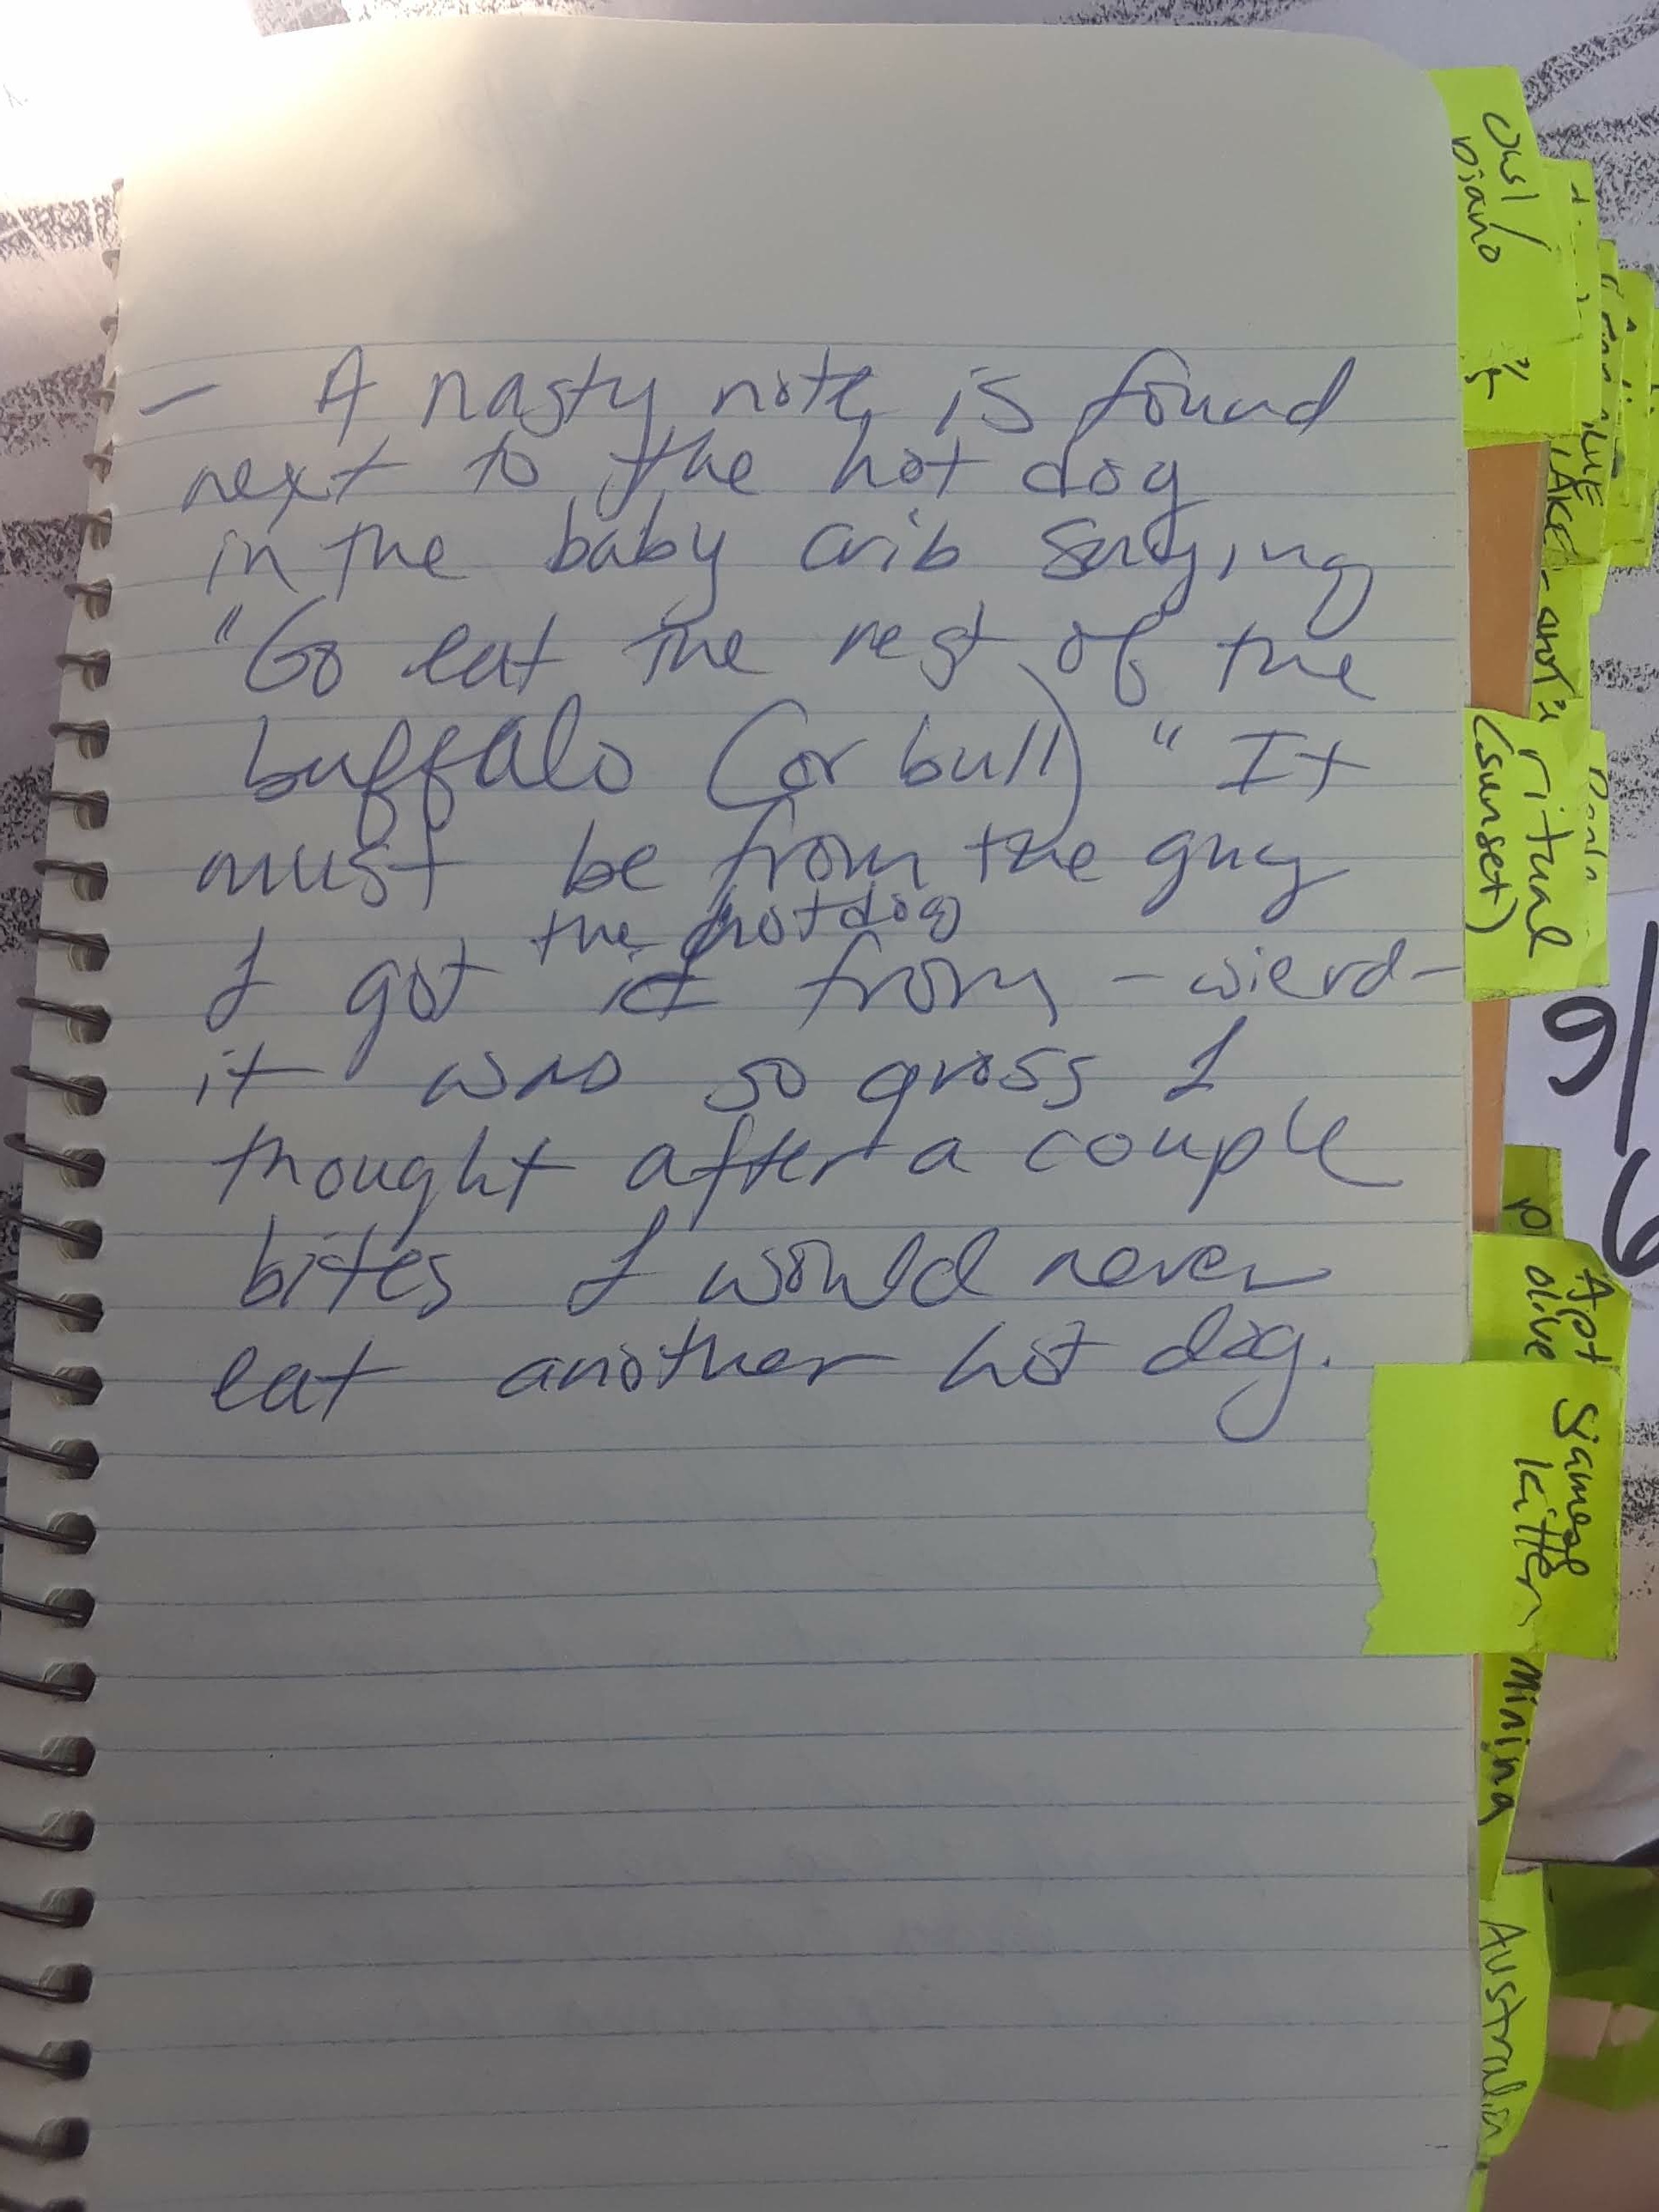 - A nasty note is found
next to the hot dog
in the baby crib saying
"Go eat the rest of the
buffalo (or bull)" It
must be from the guy
the hotdog
I got it from - wierd -
it was so gross I
thought after a couple
bites I would never
eat another hot dog.
owl/
piano
ritual
(sunset)
Apt
olive
siamese
kitten
mining
Australia